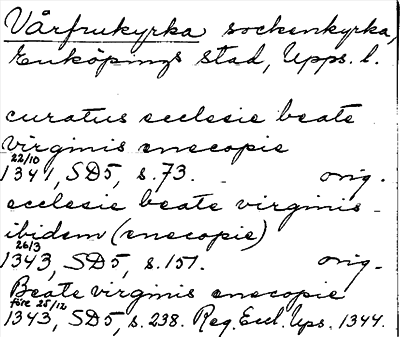 Vårfrukyrka sockenkyrka,
Enköpings stad, Upps. l.
curatus ecclesie beate
virginis enecopie
22/10
1341, SD5, s. 73. orig.
ecclesie beate virginis
ibidem (enecopie)
26/3
1343, SD5, s. 151. orig.
Beate virginis enecopie
före 25/12
1343, SD5, s. 238. Reg. Eccl. Ups. 1344.